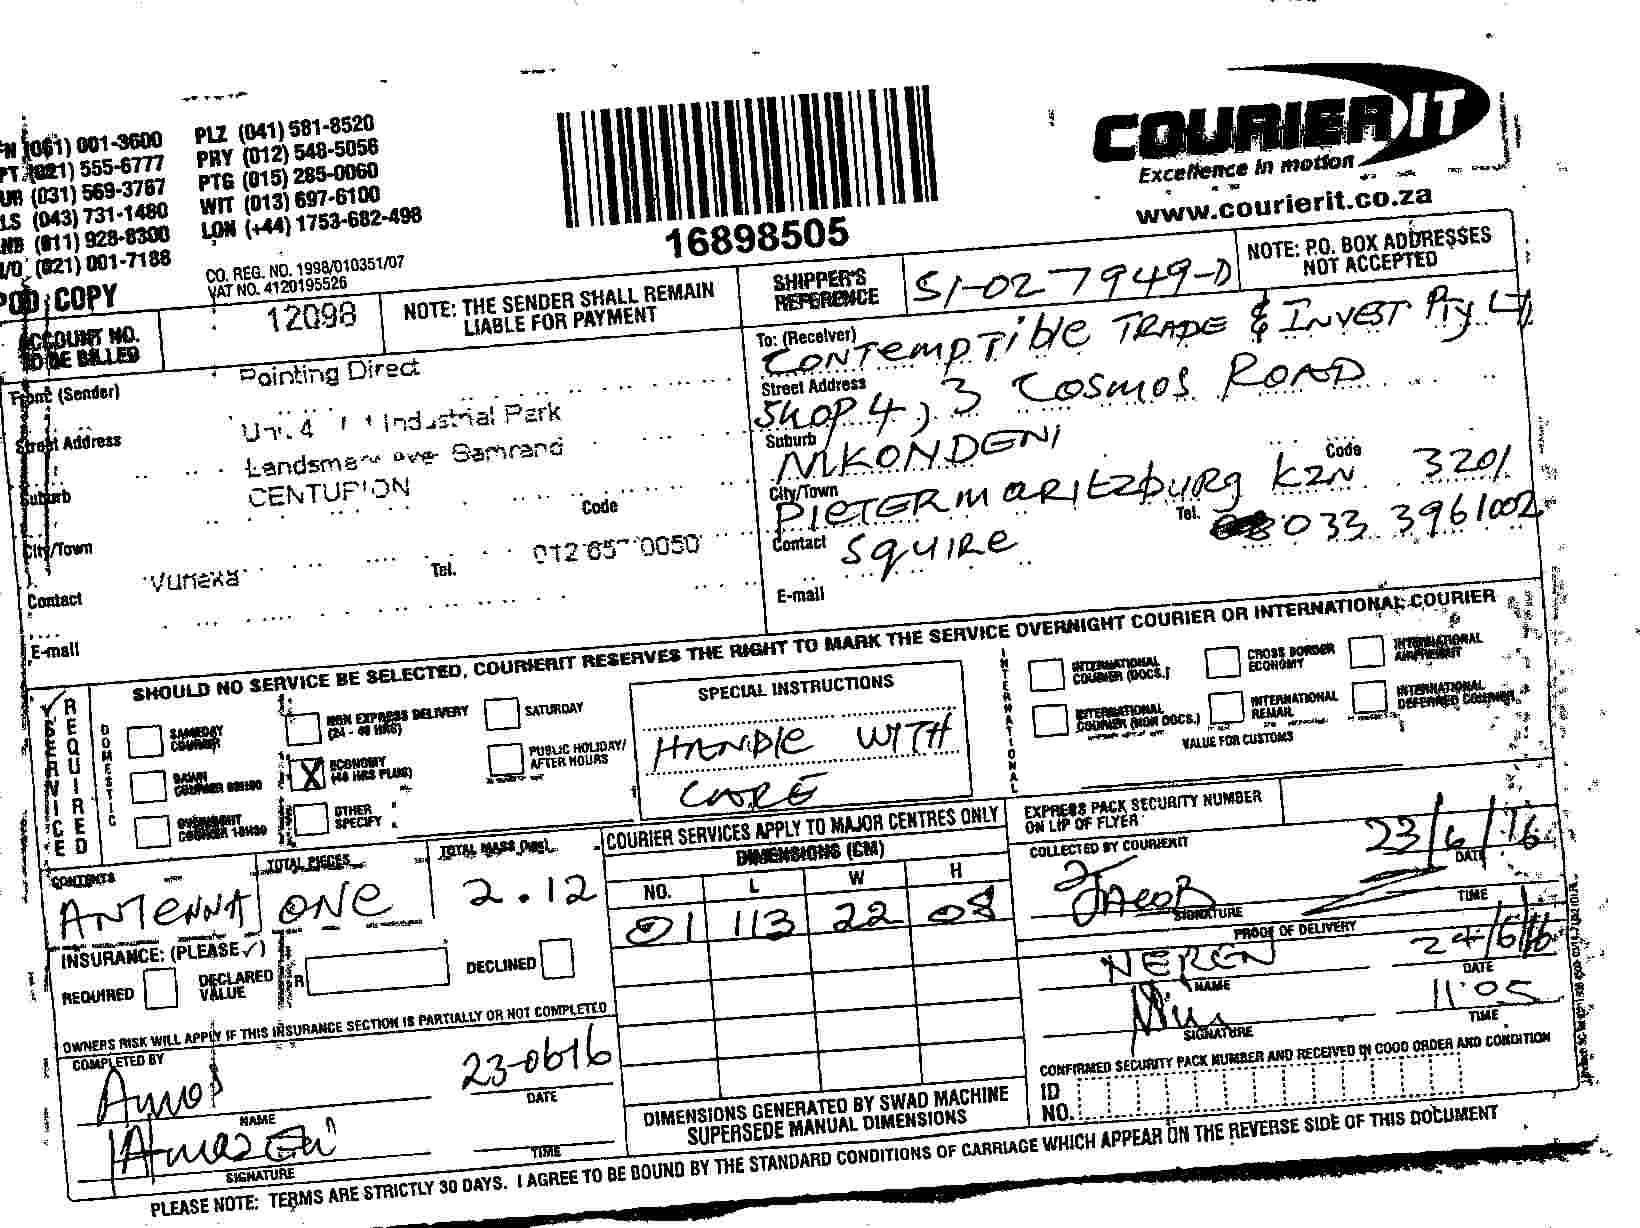 (061) 001-3600 PLZ (041) 581-8520
(021) 555-6777 PRY (012) 548-5056
(031) 569-3767 PTG (015) 285-0060
(043) 731-1480 WIT (013) 697-6100
(011) 928-8300 LON (+44) 1753-682-498
(021) 001-7188
CO. REG. NO. 1998/010351/07
VAT NO. 4120195526
POD COPY
16898505
COURIER IT
Excellence in motion
www.courierit.co.za
ACCOUNT NO.
TO BE BILLED
12098
NOTE: THE SENDER SHALL REMAIN
LIABLE FOR PAYMENT
SHIPPER'S
REFERENCE
S1-027949-D
NOTE: P.O. BOX ADDRESSES
NOT ACCEPTED
From: (Sender) Pointing Direct
Street Address Industrial Park
Landsmark Samrand
Suburb CENTURION
Code
City/Town
Tel. 012 0050
Contact
E-mail
To: (Receiver) CONTEMPTIBLE TRADE & INVEST Pty
Street Address SHOP 4, 3 COSMOS ROAD
Suburb MKONDENI
City/Town PIETERMARITZBURG KZN Code 3201
Contact SQUIRE Tel. 033 3961002
E-mail
SHOULD NO SERVICE BE SELECTED, COURIERIT RESERVES THE RIGHT TO MARK THE SERVICE OVERNIGHT COURIER OR INTERNATIONAL COURIER
SERVICE REQUIRED
DOMESTIC
SAMEDAY
COURIER
DAWN
OVERNIGHT
NON EXPRESS DELIVERY
(24 - 48 HRS)
X ECONOMY
(48 HRS PLUS)
OTHER
SPECIFY
SATURDAY
PUBLIC HOLIDAY/
AFTER HOURS
SPECIAL INSTRUCTIONS
HANDLE WITH
CARE
INTERNATIONAL
INTERNATIONAL
COURIER (DOCS.)
INTERNATIONAL
COURIER (NON DOCS.)
CROSS BORDER
ECONOMY
INTERNATIONAL
REMAIL
INTERNATIONAL
AIRFREIGHT
INTERNATIONAL
DEFERRED COURIER
VALUE FOR CUSTOMS
CONTENTS
ANTENNA
TOTAL PIECES
ONE
TOTAL MASS
2.12
COURIER SERVICES APPLY TO MAJOR CENTRES ONLY
DIMENSIONS (CM)
NO. L W H
01 113 22 08
DIMENSIONS GENERATED BY SWAD MACHINE
SUPERSEDE MANUAL DIMENSIONS
INSURANCE: (PLEASE ✓)
REQUIRED
DECLARED
VALUE
R
DECLINED
OWNERS RISK WILL APPLY IF THIS INSURANCE SECTION IS PARTIALLY OR NOT COMPLETED
COMPLETED BY
Amos
NAME
23-0616
DATE
SIGNATURE
TIME
EXPRESS PACK SECURITY NUMBER
ON LIP OF FLYER
COLLECTED BY COURIERIT
23/6/16
DATE
Jacob
SIGNATURE
TIME
PROOF OF DELIVERY
NEREN
NAME
24/6/16
DATE
SIGNATURE
11:05
TIME
CONFIRMED SECURITY PACK NUMBER AND RECEIVED IN GOOD ORDER AND CONDITION
ID
NO.
PLEASE NOTE: TERMS ARE STRICTLY 30 DAYS. I AGREE TO BE BOUND BY THE STANDARD CONDITIONS OF CARRIAGE WHICH APPEAR ON THE REVERSE SIDE OF THIS DOCUMENT